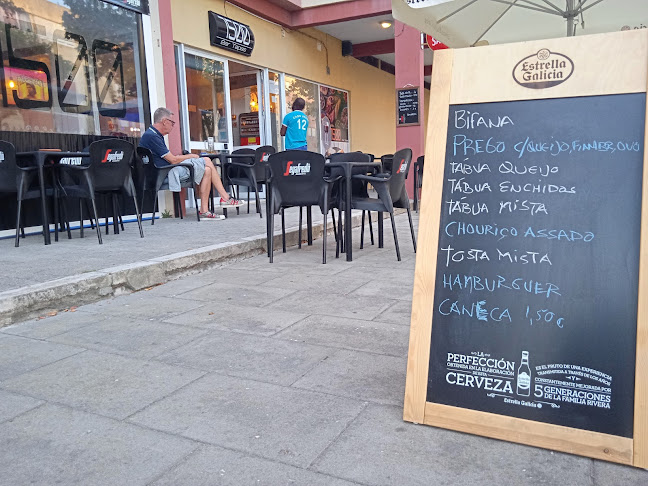 500
1500
Bar Tapas
12
Segafredo
Segafredo
Segafredo
Estrella
Galicia
BIFANA
PREGO C/QUEIJO, FIAMBRE, OVO
TÁBUA QUEIJO
TÁBUA ENCHIDOS
TÁBUA MISTA
CHOURIÇO ASSADO
TOSTA MISTA
HAMBURGUER
CANECA 1,50€
LA
PERFECCIÓN
OBTENIDA EN LA ELABORACIÓN
DE ESTA
CERVEZA
ES EL FRUTO DE UNA EXPERIENCIA
TRANSMITIDA A TRAVÉS DE LOS AÑOS
Y
CONSTANTEMENTE MEJORADA POR
5 GENERACIONES
DE LA FAMILIA RIVERA
Estrella Galicia